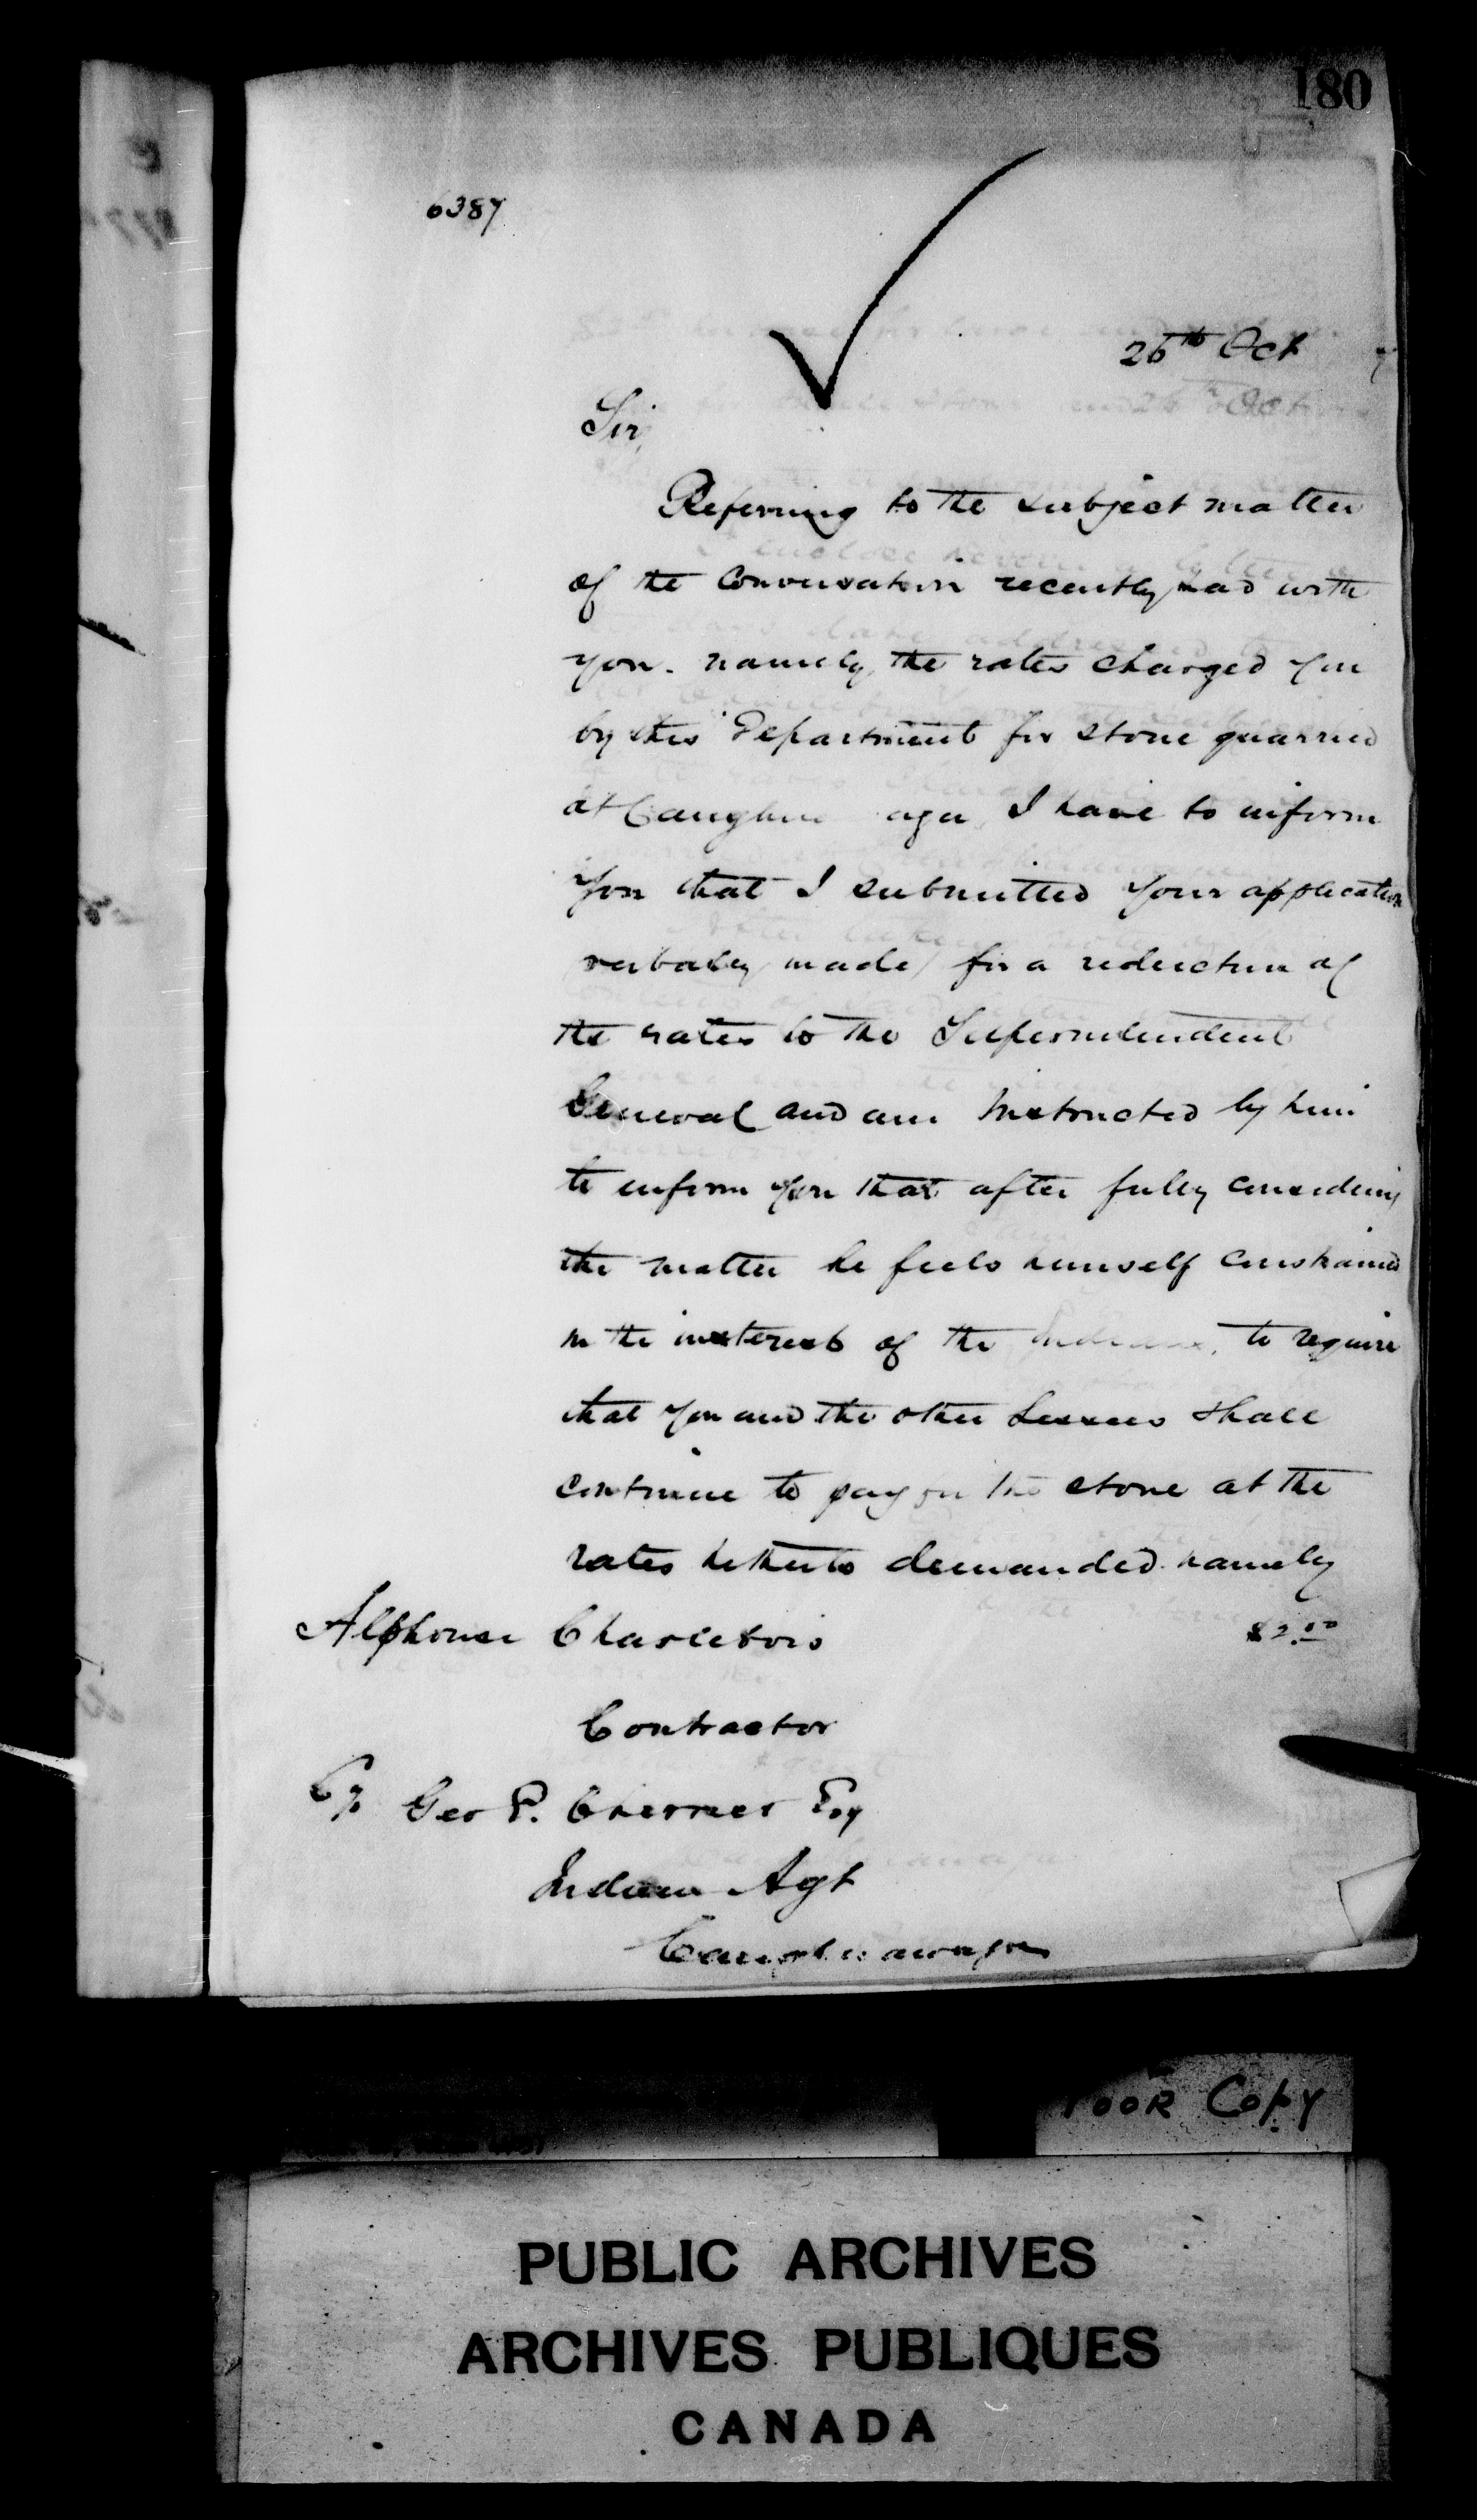 180
6387
26th Oct
Sir,
Referring to the subject matter
of the Conversation recently had with
you. namely, the rates charged you
by this Department for stone quarried
at Caughn aga I have to inform
you that I submitted your application
verbally made for a reduction of
the rates to the Superintendent
General and am instructed by him
to inform you that after fully considering
the matter he feels himself constrained
in the interest of the Indians, to require
that you and the other Lessees shall
continue to pay for the stone at the
rates hitherto demanded namely
Alphonse Charlebois $2.00
Contractor
Geo P. Cherrier Esq
Indian Agt
Caughnawaga
POOR COPY
PUBLIC ARCHIVES
ARCHIVES PUBLIQUES
CANADA